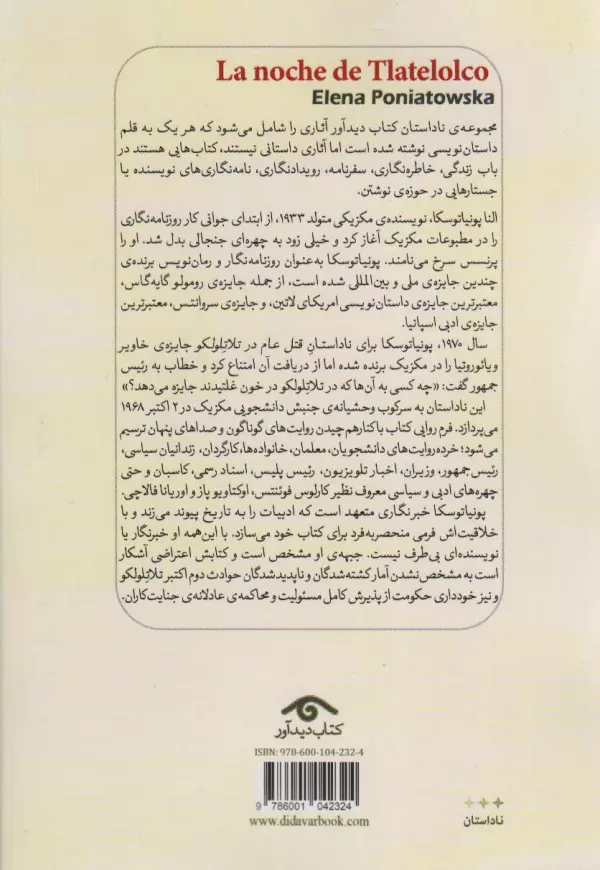 La noche de Tlatelolco
Elena Poniatowska
مجموعه‌ی ناداستان کتاب دیدآور آثاری را شامل می‌شود که هر یک به قلم
داستان‌نویسی نوشته شده است اما آثاری داستانی نیستند، کتاب‌هایی هستند در
باب زندگی، خاطره‌نگاری، سفرنامه، رویدادنگاری، نامه‌نگاری‌های نویسنده یا
جستارهایی در حوزه‌ی نوشتن.
النا پونیاتوسکا، نویسنده‌ی مکزیکی متولد ۱۹۳۳، از ابتدای جوانی کار روزنامه‌نگاری
را در مطبوعات مکزیک آغاز کرد و خیلی زود به چهره‌ای جنجالی بدل شد. او را
پرنسس سرخ می‌نامند. پونیاتوسکا به‌عنوان روزنامه‌نگار و رمان‌نویس برنده‌ی
چندین جایزه‌ی ملی و بین‌المللی شده است، از جمله جایزه‌ی رومولو گایه‌گاس،
معتبرترین جایزه‌ی داستان‌نویسی امریکای لاتین، و جایزه‌ی سروانتس، معتبرترین
جایزه‌ی ادبی اسپانیا.
سال ۱۹۷۰، پونیاتوسکا برای ناداستانِ قتل عام در تلاتِلولکو جایزه‌ی خاویر
ویائوروتیا را در مکزیک برنده شده اما از دریافت آن امتناع کرد و خطاب به رئیس
جمهور گفت: «چه کسی به آن‌ها که در تلاتِلولکو در خون غلتیدند جایزه می‌دهد؟»
این ناداستان به سرکوب وحشیانه‌ی جنبش دانشجویی مکزیک در ۲ اکتبر ۱۹۶۸
می‌پردازد. فرم روایی کتاب با کنار هم چیدن روایت‌های گوناگون و صداهای پنهان ترسیم
می‌شود؛ خرده‌روایت‌های دانشجویان، معلمان، خانواده‌ها، کارگردان، زندانیان سیاسی،
رئیس‌جمهور، وزیران، اخبار تلویزیون، رئیس پلیس، اسناد رسمی، کاسبان و حتی
چهره‌های ادبی و سیاسی معروف نظیر کارلوس فوئنتس، اوکتاویو پاز و اوریانا فالاچی.
پونیاتوسکا خبرنگاری متعهد است که ادبیات را به تاریخ پیوند می‌زند و با
خلاقیت‌اش فرمی منحصربه‌فرد برای کتاب خود می‌سازد. با این‌همه او خبرنگار یا
نویسنده‌ای بی‌طرف نیست. جبهه‌ی او مشخص است و کتابش اعتراضی آشکار
است به مشخص نشدن آمار کشته‌شدگان و ناپدیدشدگان حوادث دوم اکتبر تلاتِلولکو
و نیز خودداری حکومت از پذیرش کامل مسئولیت و محاکمه‌ی عادلانه‌ی جنایت‌کاران.
کتاب دیدآور
ISBN: 978-600-104-232-4
9 786001 042324
www.didavarbook.com
ناداستان